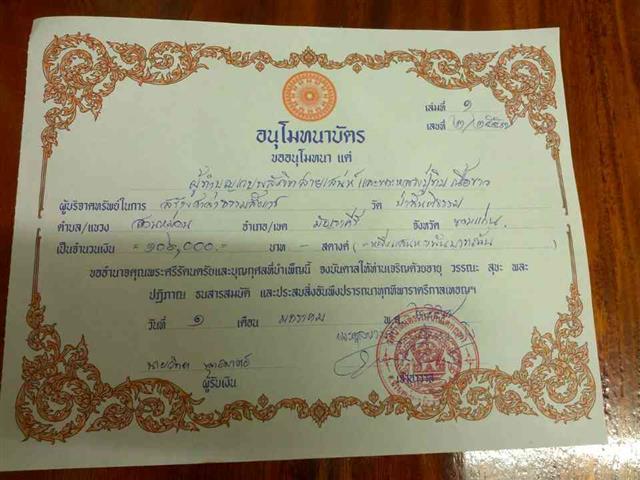 เล่มที่ ๑
เลขที่ ๒/๒๕๕๗
อนุโมทนาบัตร
ขออนุโมทนา แด่
ผู้ทำบุญ
ผู้บริจาคทรัพย์ในการ สร้างศาลาธรรมสังเวช วัด ป่าสันติธรรม
ตำบล/แขวง สวนหม่อน อำเภอ/เขต มัญจาคีรี จังหวัด ขอนแก่น
เป็นจำนวนเงิน = ๑๐๖,๐๐๐.- บาท - สตางค์ (
ขออำนาจคุณพระศรีรัตนตรัยและบุญกุศลที่บำเพ็ญนี้ จงบันดาลให้ท่านเจริญด้วยอายุ วรรณะ สุขะ พละ
ปฏิภาณ ธนสารสมบัติ และประสบสิ่งอันพึงปรารถนาทุกทิพาราตรีกาลเทอญฯ
วันที่ ๑ เดือน มกราคม พ.ศ.
ผู้รับเงิน
เจ้าอาวาส